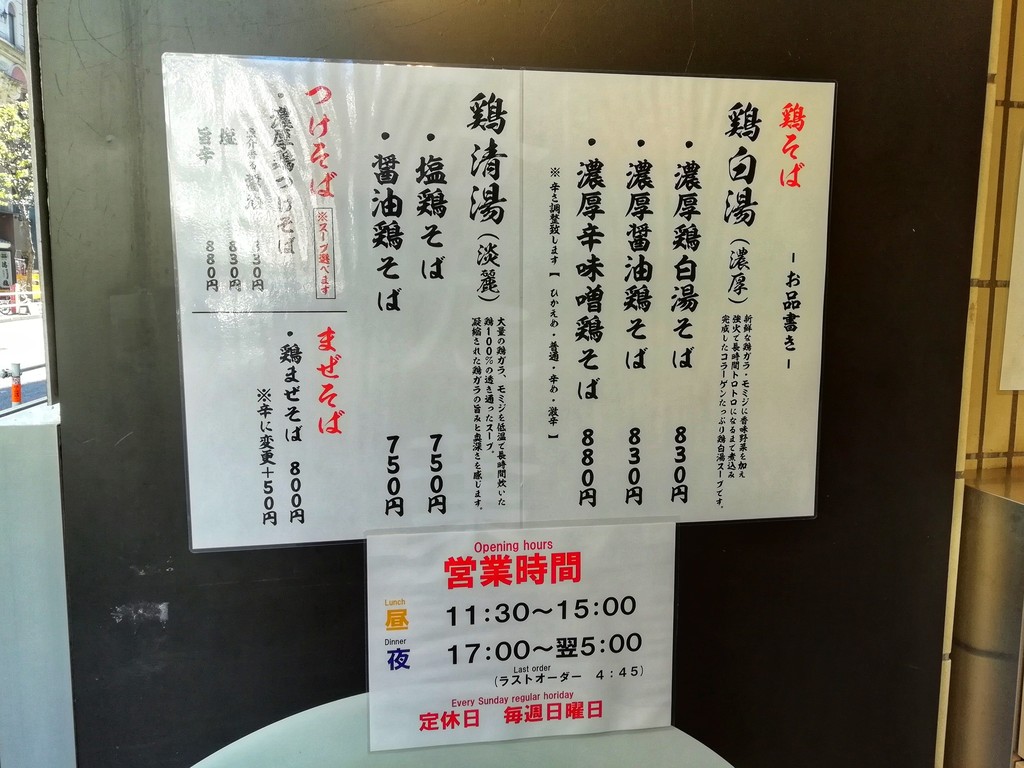 鶏そば
－お品書き－
鶏白湯（濃厚）
新鮮な鶏ガラ・モミジに香味野菜を加え
強火で長時間トロトロになるまで煮込み
完成したコラーゲンたっぷり鶏白湯スープです。
・濃厚鶏白湯そば 830円
・濃厚醤油鶏そば 830円
・濃厚辛味噌鶏そば 880円
※辛さ調整致します【ひかえめ・普通・辛め・激辛】
鶏清湯（淡麗）
大量の鶏ガラ、モミジを低温で長時間炊いた
鶏100%の透き通ったスープ。
凝縮された鶏ガラの旨みと奥深さを感じます。
・塩鶏そば 750円
・醤油鶏そば 750円
つけそば
※スープ選べます
・濃厚鶏つけそば
830円
塩 830円
旨辛 880円
まぜそば
・鶏まぜそば 800円
※辛に変更＋50円
Opening hours
営業時間
Lunch
昼 11:30～15:00
Dinner
夜 17:00～翌5:00
Last order
(ラストオーダー 4：45)
Every Sunday regular horiday
定休日 毎週日曜日